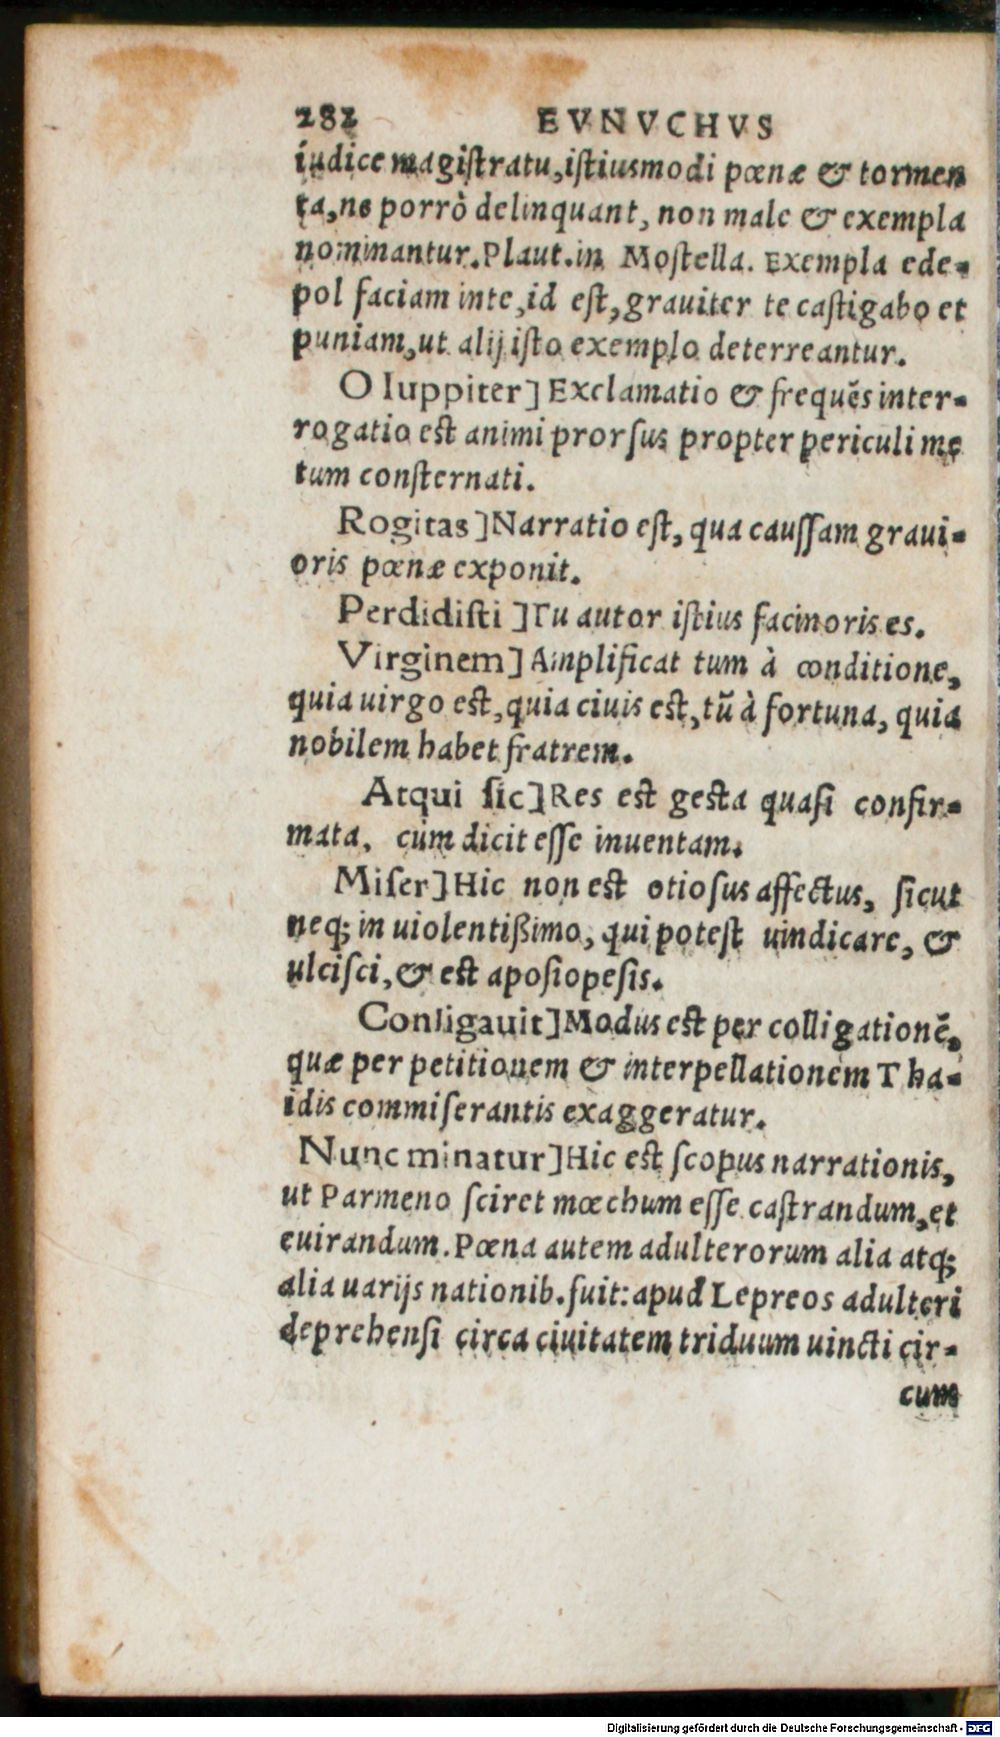 282 EVNVCHVS
iudice magiſtratu,iſtiusmodi pœnæ & tormen
ta,ne porrò delinquant, non male & exempla
nominantur.Plaut.in Moſtella. Exempla ede-
pol faciam in te,id eſt,grauiter te caſtigabo et
puniam,ut alij iſto exemplo deterreantur.
O Iuppiter] Exclamatio & frequẽs inter-
rogatio eſt animi prorſus propter periculi me
tum conſternati.
Rogitas] Narratio eſt, qua cauſſam graui-
oris pœnæ exponit.
Perdidiſti ] Tu autor iſtius facinoris es.
Virginem] Amplificat tum à conditione,
quia uirgo eſt,quia ciuis eſt,tũ à fortuna, quia
nobilem habet fratrem.
Atqui ſic] Res eſt geſta quaſi confir-
mata, cùm dicit eſſe inuentam.
Miſer] Hic non est otioſus affectus, ſicut
neq; in uiolentißimo, qui poteſt uindicare, &
ulciſci,& eſt apoſiopeſis.
Conligauit] Modus eſt per colligationẽ,
quæ per petitionem & interpellationem Tha-
idis commiſerantis exaggeratur.
Nunc minatur] Hic eſt ſcopus narrationis,
ut Parmeno ſciret mœchum eſſe caſtrandum,et
euirandum.Pœna autem adulterorum alia atq;
alia uarijs nationib.fuit: apud Lepreos adulteri
deprehenſi circa ciuitatem triduum uincti cir-
cum
Digitalisierung gefördert durch die Deutsche Forschungsgemeinschaft - DFG